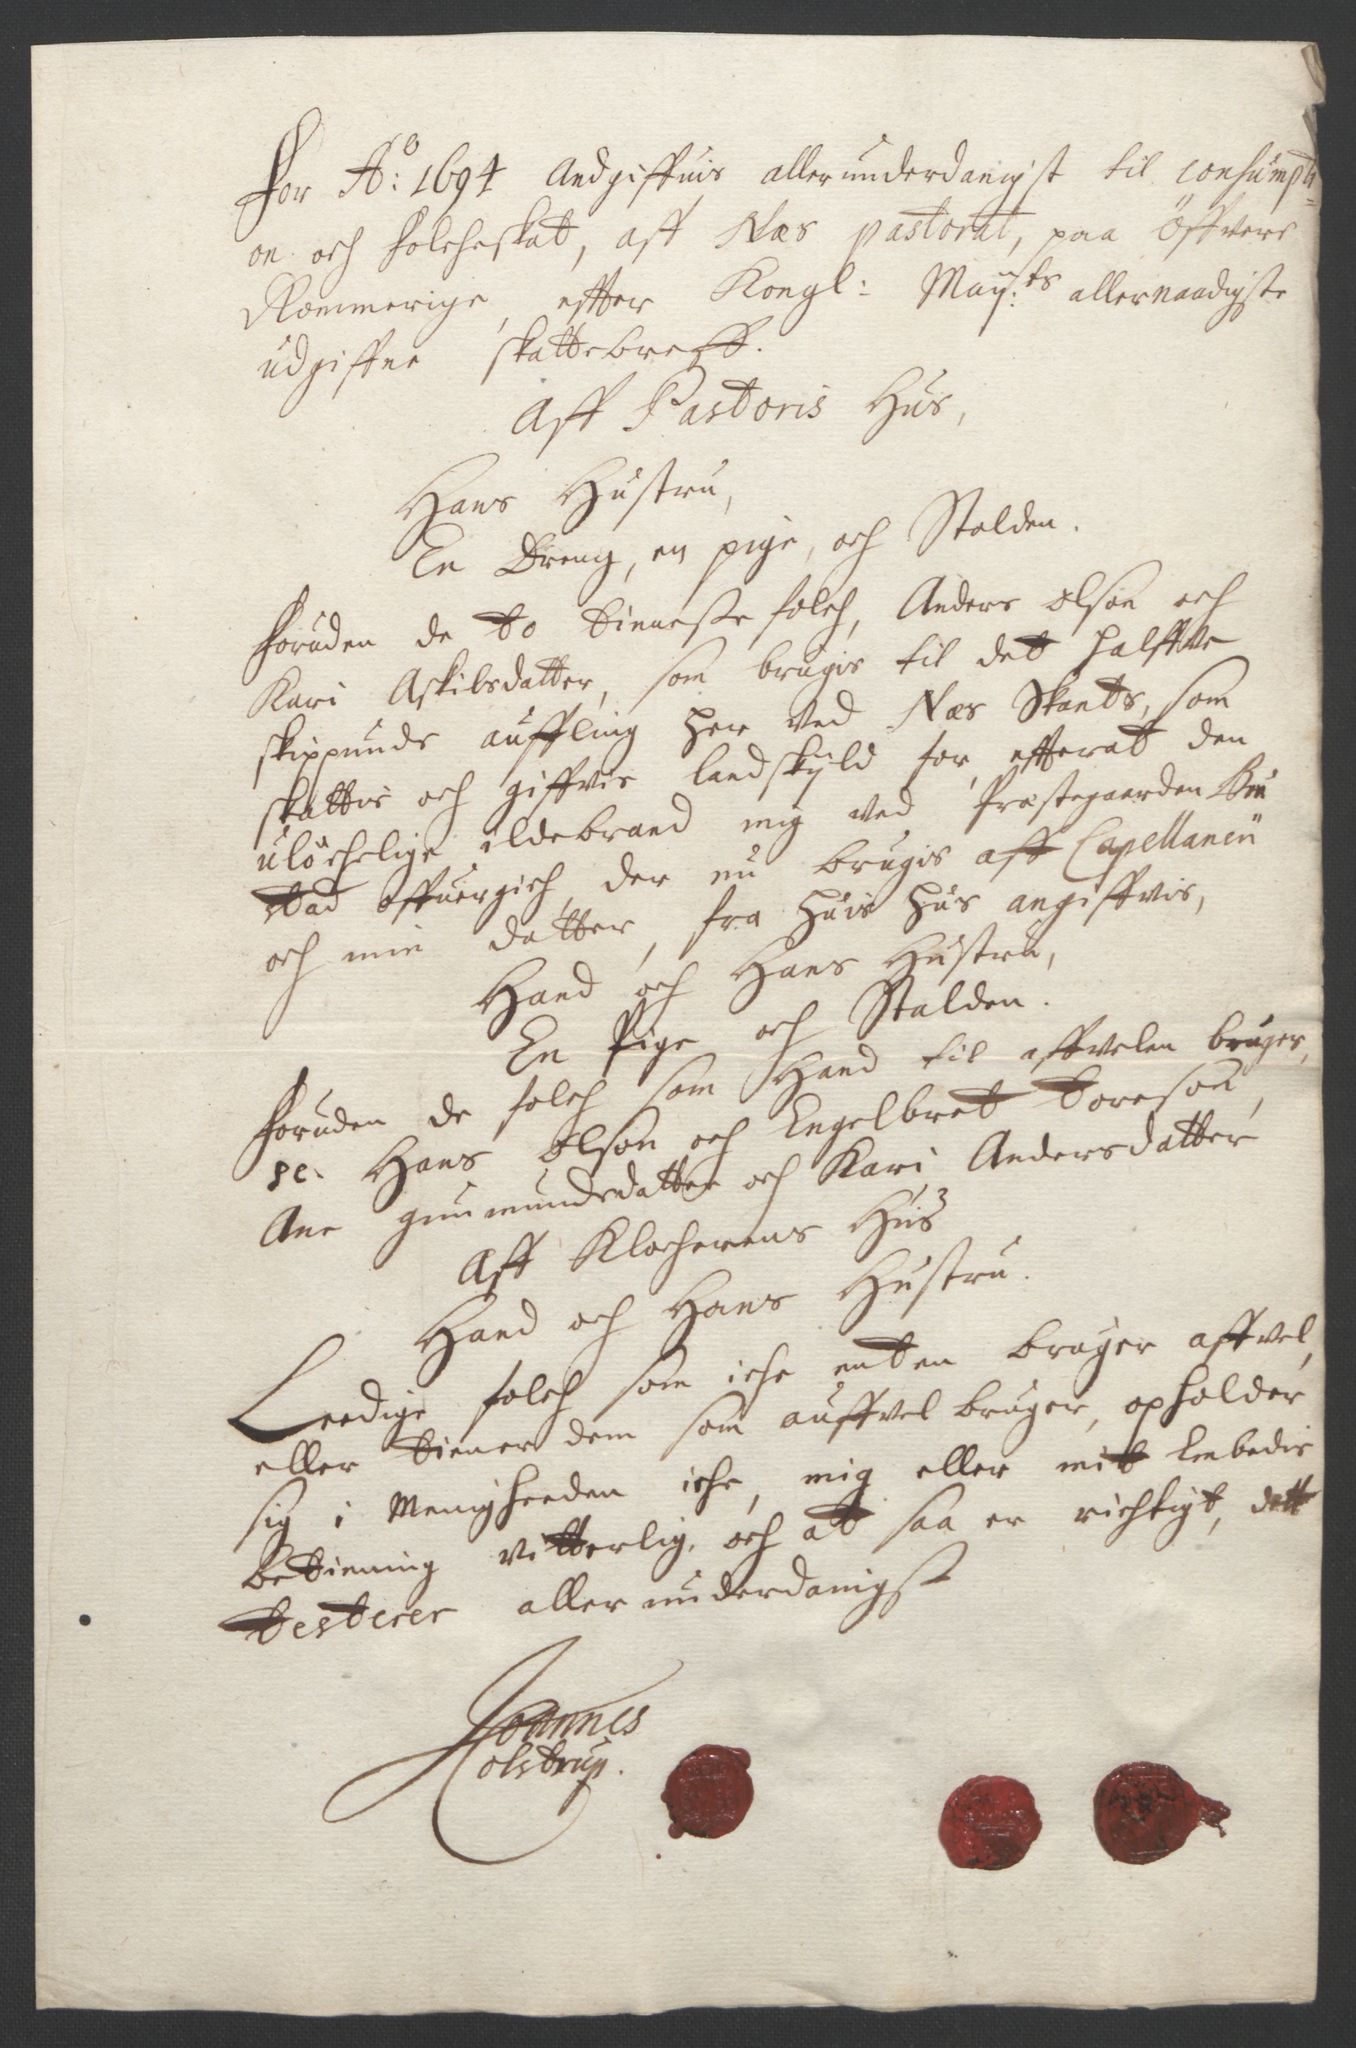 For A:o 1694 Andgiffuis allerunderdanigst til consumpti=
on och folcheskat, aff Næs pastorat, paa Öffvere
Romerige, effter Kongl: May:ts allernaadigste
udgiffne skattebreff.
Aff Pastoris Hus,
Hans Hustru,
En Dreng, en pige, och Stalden.
Foruden de to tienneste folch, Anders Olson och
Kari Askilsdatter, som brugis til det halffve
skippunds auffling her ved Næs Skants, som
skattis och giffvis landskyld for, efferat den
ulöchelige ildebrand mig ved Præstegaarden
stad offuergich, der nu brugis aff Capellanen
och min datter, fra huis hus angiffvis,
Hand och Hans Hustru,
En Pige och Stalden.
Foruden de folch som Hand til affvelen bruger,
sc. Hans Olson och Engelbret Toreson,
Ane gunmundsdatter och Kari Andersdatter
Aff Klocherens Hus
Hand och Hans Hustru.
Leedige folch som iche enten bruger affvel,
eller tiener dem som auffvel bruger, opholder
sig i Menigheeden iche, mig eller mit Embedis
betiening vitterlig. och at saa er richtigt, dett
testerer allerunderdanigst
Joannes
Colstrup.